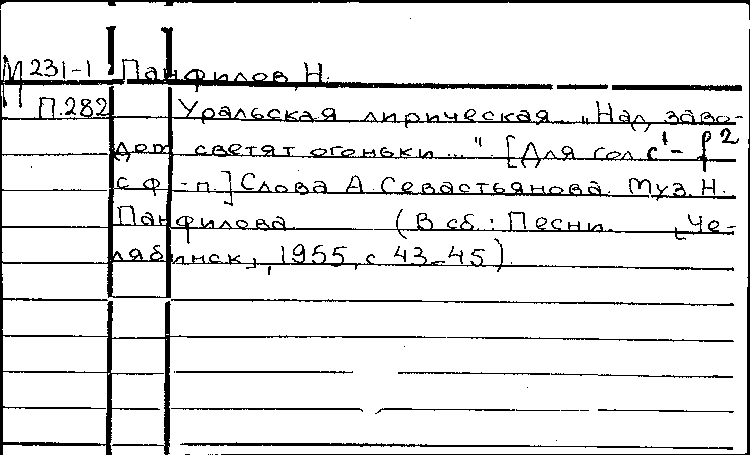 М 231-1 Панфилов, Н.
П.282 Уральская лирическая. „Над заво-
дом светят огоньки..." [Для сол. c¹- f²
с ф.-п.] Слова А. Севастьянова. Муз. Н.
Панфилова. (В сб.: Песни. [Че-
лябинск], 1955, с. 43-45).